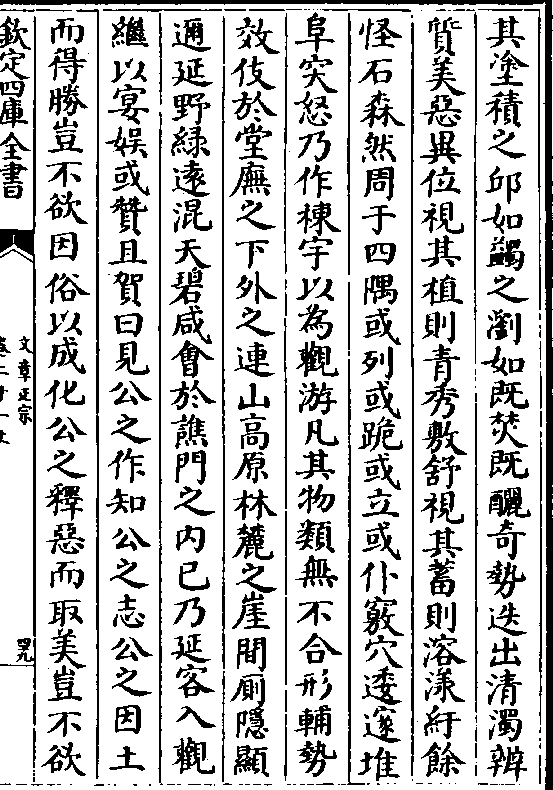 其塗積之邱如蠲之瀏如既焚既釃奇勢迭出清濁辨
質美惡異位視其植則青秀敷舒視其蓄則溶漾紆餘
怪石森然周于四隅或列或跪或立或仆竅穴逶邃堆
阜突怒乃作棟宇以為觀游凡其物類無不合形輔勢
效伎於堂廡之下外之連山高原林麓之崖間厠隱顯
邇延野綠遠混天碧咸會於譙門之内已乃延客入觀
繼以宴娱或贊且賀曰見公之作知公之志公之因土
而得勝豈不欲因俗以成化公之釋惡而取美豈不欲
欽定四庫全書
文章正宗
卷二十一上
四九